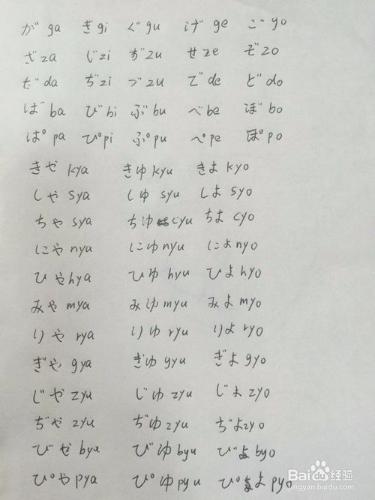 が ga ぎ gi ぐ gu げ ge ご go
ざ za じ zi ず zu ぜ ze ぞ zo
だ da ぢ zi づ zu で de ど do
ば ba び bi ぶ bu べ be ぼ bo
ぱ pa ぴ pi ぷ pu ぺ pe ぽ po
きや kya きゆ kyu きよ kyo
しや sya しゆ syu しよ syo
ちや sya ちゆ cyu ちよ cyo
にや nya にゆ nyu によ nyo
ひや hya ひゆ hyu ひよ hyo
みや mya みゆ myu みよ myo
りや rya りゆ ryu りよ ryo
ぎや gya ぎゆ gyu ぎよ gyo
じや zya じゆ zyu じよ zyo
ぢや zya ぢゆ zyu ぢよ zyo
びや bya びゆ byu びよ byo
ぴや pya ぴゆ pyu ぴよ pyo
Baidu 经验
jingyan.baidu.com